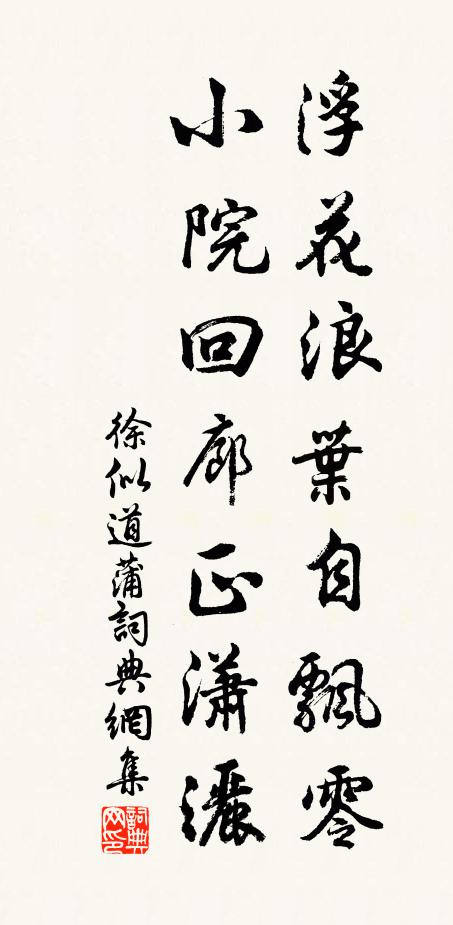 浮花浪葉自飄零
小院回廊正瀟灑
徐似道蒲詞典網集
詞典网印